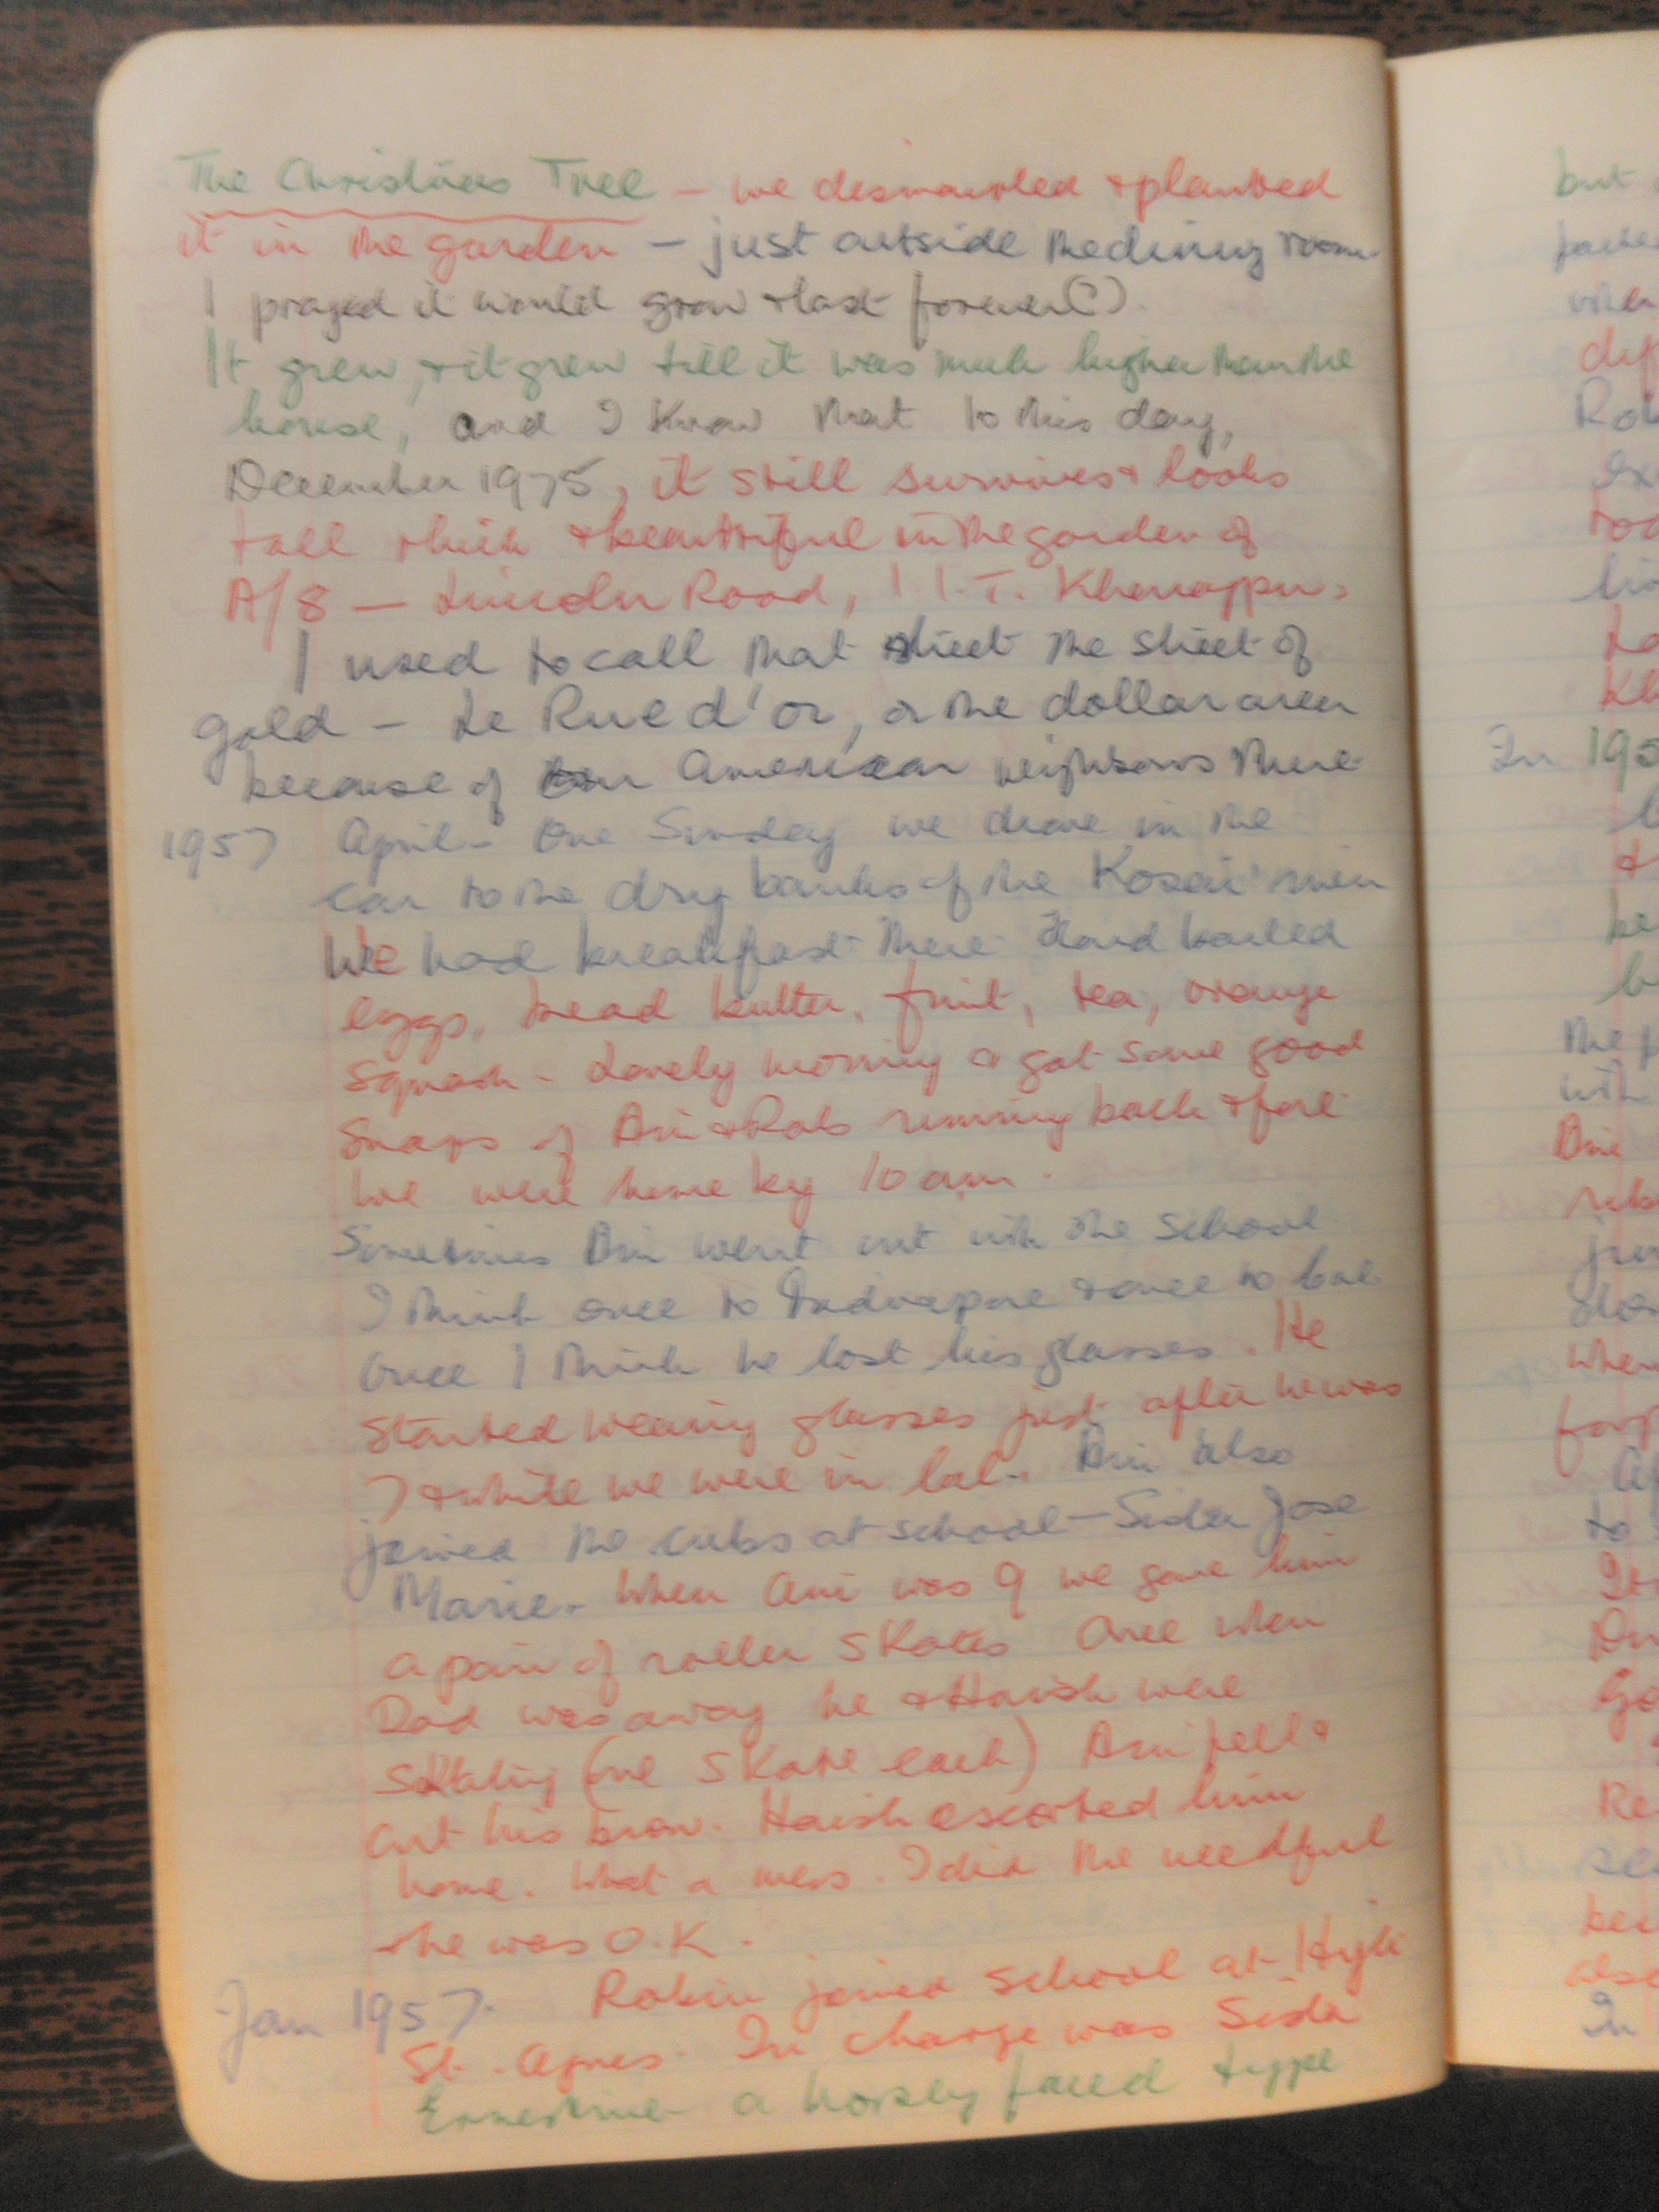 The Christmas Tree – we dismantled & planted
it in the garden – just outside the dining room.
I prayed it would grow & last forever(?).
It grew, & it grew till it was much higher than the
house, and I know that to this day,
December 1975, it still survives & looks
tall thick & beautiful in the garden of
A/8 – Lincoln Road, I.I.T. Kharagpur.
I used to call that street the street of
gold – Le Rue d'or, or the dollar area
because of our American neighbours there.
1957 April – One Sunday we drove in the
car to the dry banks of the Kosai river
We had breakfast there Hard boiled
eggs, bread butter, fruit, tea, orange
squash – Lovely morning & got some good
snaps of Ani & Rob running back & fore
We were home by 10 am.
Sometimes Ani went out with the school
I think once to Midnapore & once to Cal.
Once I think he lost his glasses. He
started wearing glasses just after he was
7 & while we were in Cal. Ani also
joined the cubs at school – Sister Jose
Marie. When Ani was 9 we gave him
a pair of roller skates Once when
Dad was away he & Harish were
skating (one skate each) Ani fell &
cut his brow. Harish escorted him
home. What a mess. I did the needful
& he was O.K.
Jan 1957. Robin joined school at Hijli
St. Agnes. In charge was Sister
Ernestine a horsey faced type
but
Rob
In 195
with
Ani
when
to
In